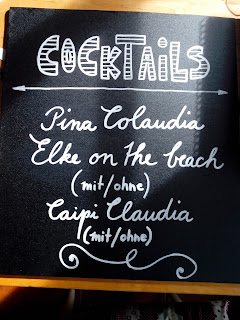 COCKTAiLS
Pina Colaudia
Elke on the beach
(mit/ohne)
Caipi Claudia
(mit/ohne)